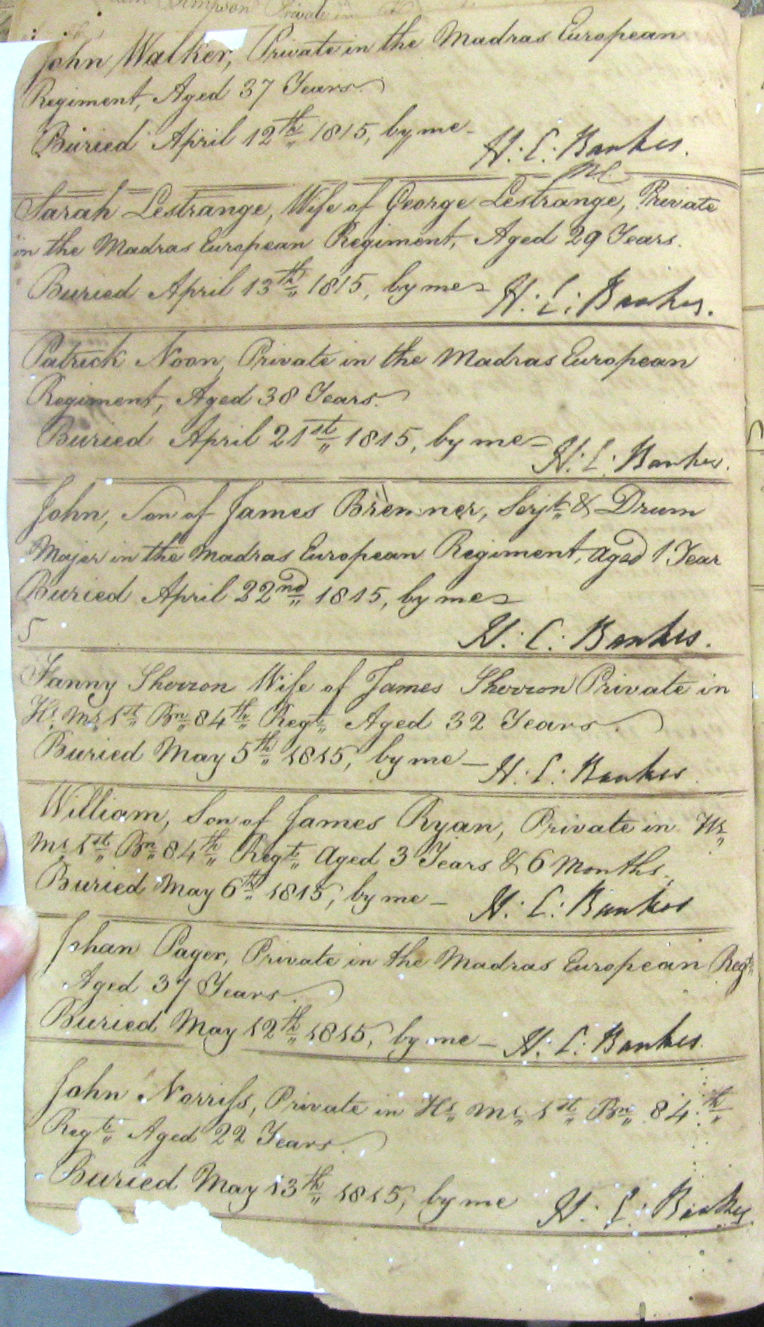 Simpson Private in
John Walker, Private in the Madras European
Regiment, Aged 37 Years
Buried April 12th 1815, by me
H: C: Bankes.
Sarah Lestrange, Wife of George Lestrange, Private
in the Madras European Regiment, Aged 29 Years.
Buried April 13th 1815, by me H: C: Bankes.
Patrick Noon, Private in the Madras European
Regiment, Aged 38 Years.
Buried April 21st 1815, by me
H: C: Bankes.
John, Son of James Brenner, Serjt. & Drum
Major in the Madras European Regiment, aged 1 Year
Buried April 22nd 1815, by me
5
H: C: Bankes.
Fanny Sherron Wife of James Sherron Private in
Hs. Ms. 1st Bn. 84th Regt. Aged 32 Years
Buried May 5th 1815, by me H: C: Bankes
William, Son of James Ryan, Private in Hs.
Ms. 1st Bn. 84th Regt. Aged 3 Years & 6 Months.
Buried May 6th 1815, by me H: C: Bankes
Johan Pager, Private in the Madras European Regt.
Aged 37 Years.
Buried May 12th 1815, by me H: C: Bankes.
John Norriss, Private in Hs. Ms. 1st Bn. 84th
Regt. Aged 22 Years.
Buried May 13th 1815, by me H: C: Bankes.